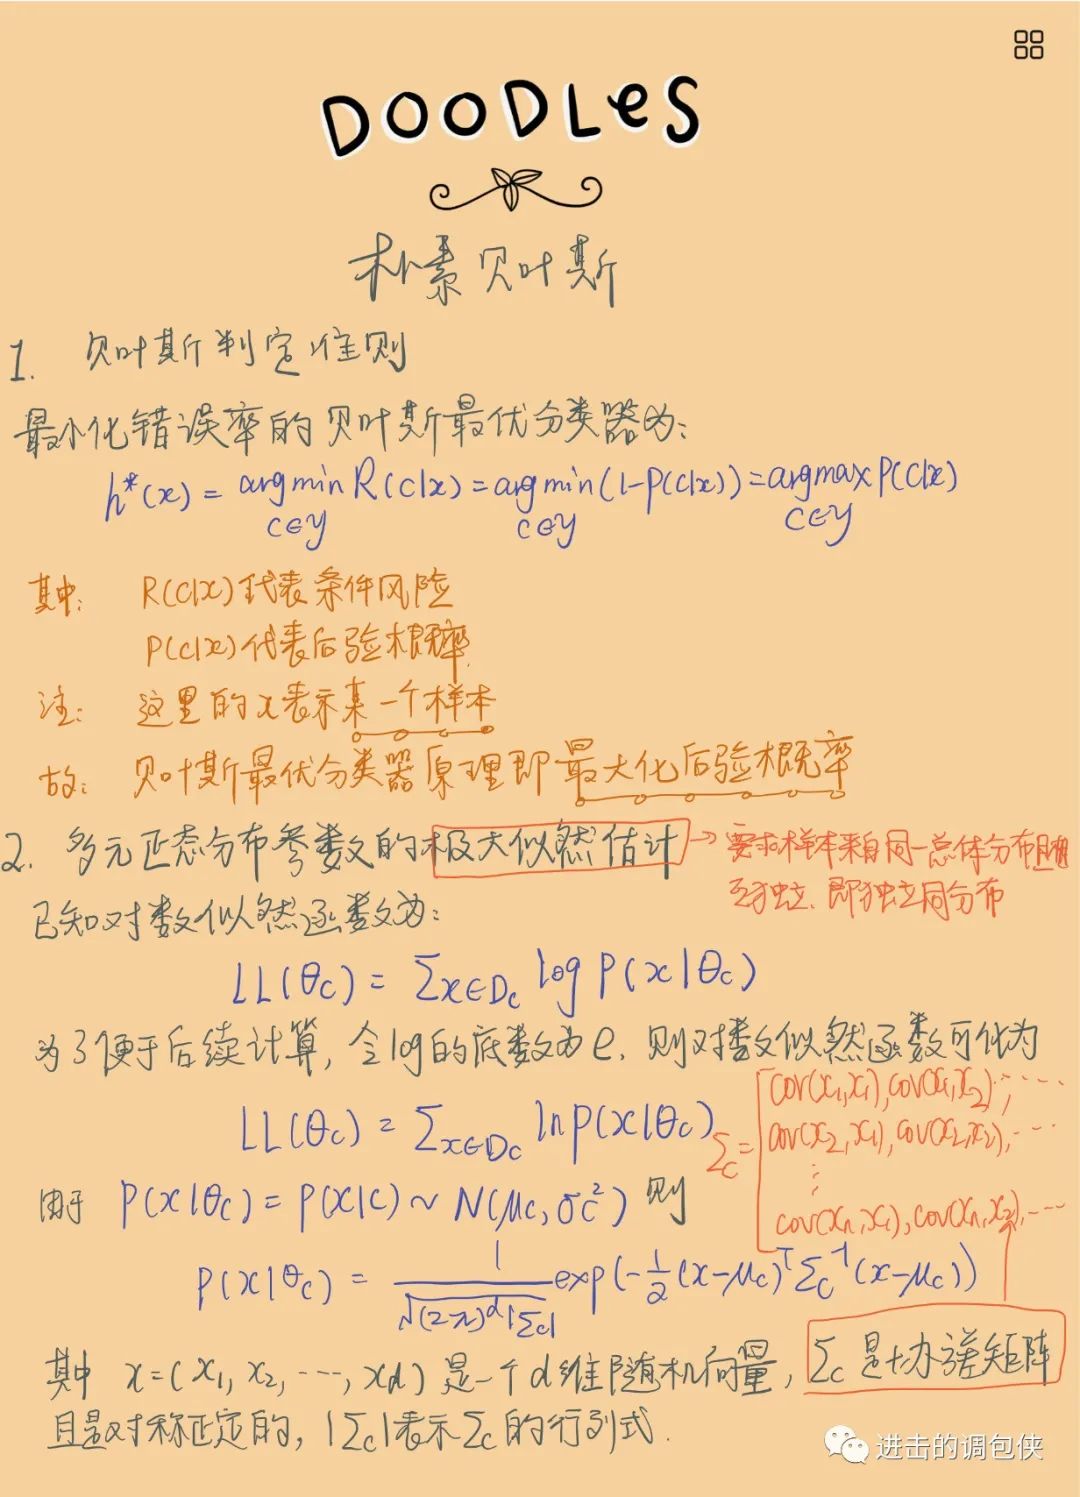 DOODLes
朴素贝叶斯
1. 贝叶斯判定准则
最小化错误率的贝叶斯最优分类器为:
h*(x) = argmin R(c|x) = argmin (1-P(c|x)) = argmax P(c|x)
c∈y c∈y c∈y
其中: R(c|x)代表条件风险
P(c|x)代表后验概率.
注: 这里的x表示某一个样本
故: 贝叶斯最优分类器原理即最大化后验概率
2. 多元正态分布参数的极大似然估计 → 要求样本来自同一总体分布且相
互独立、即独立同分布
已知对数似然函数为:
LL(θc) = Σx∈Dc log P(x|θc)
为了便于后续计算, 令log的底数为e, 则对数似然函数可化为
LL(θc) = Σx∈Dc ln P(x|θc)
Σc = [cov(x₁,x₁), cov(x₁,x₂), ……
cov(x₂,x₁), cov(x₂,x₂), …
⋮
cov(xn,x₁), cov(xn,x₂), …
由于 P(x|θc) = P(x|c) ~ N(μc, σc²) 则
P(x|θc) = 1/√((2π)^d|Σc|) exp(-1/2 (x-μc)ᵀ Σc⁻¹ (x-μc))
其中 x = (x₁, x₂, …, xd) 是一个d维随机向量, Σc 是协方差矩阵
且是对称正定的, |Σc|表示Σc的行列式.
进击的调包侠